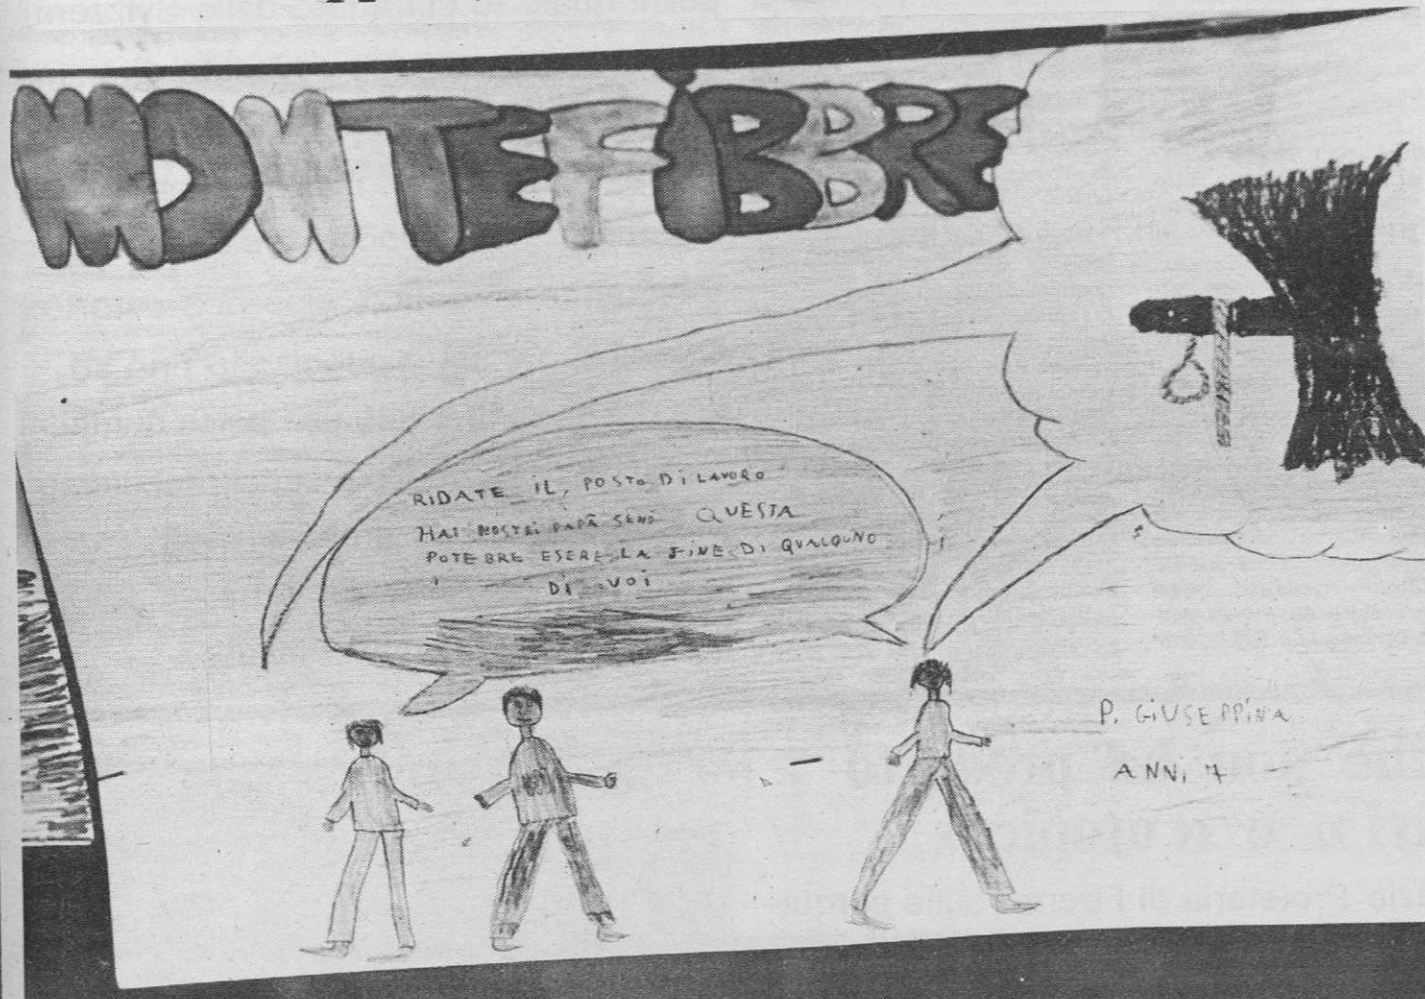 MONTEFiBBRE
RIDATE IL, POSTO Di LAVORO
HAI NOSTRI PAPÀ SENÒ QUESTA
POTEBRE ESERE LA FINE DI QUALQUNO
Di VOI
P. GiUSEPPiNA
ANNi 7